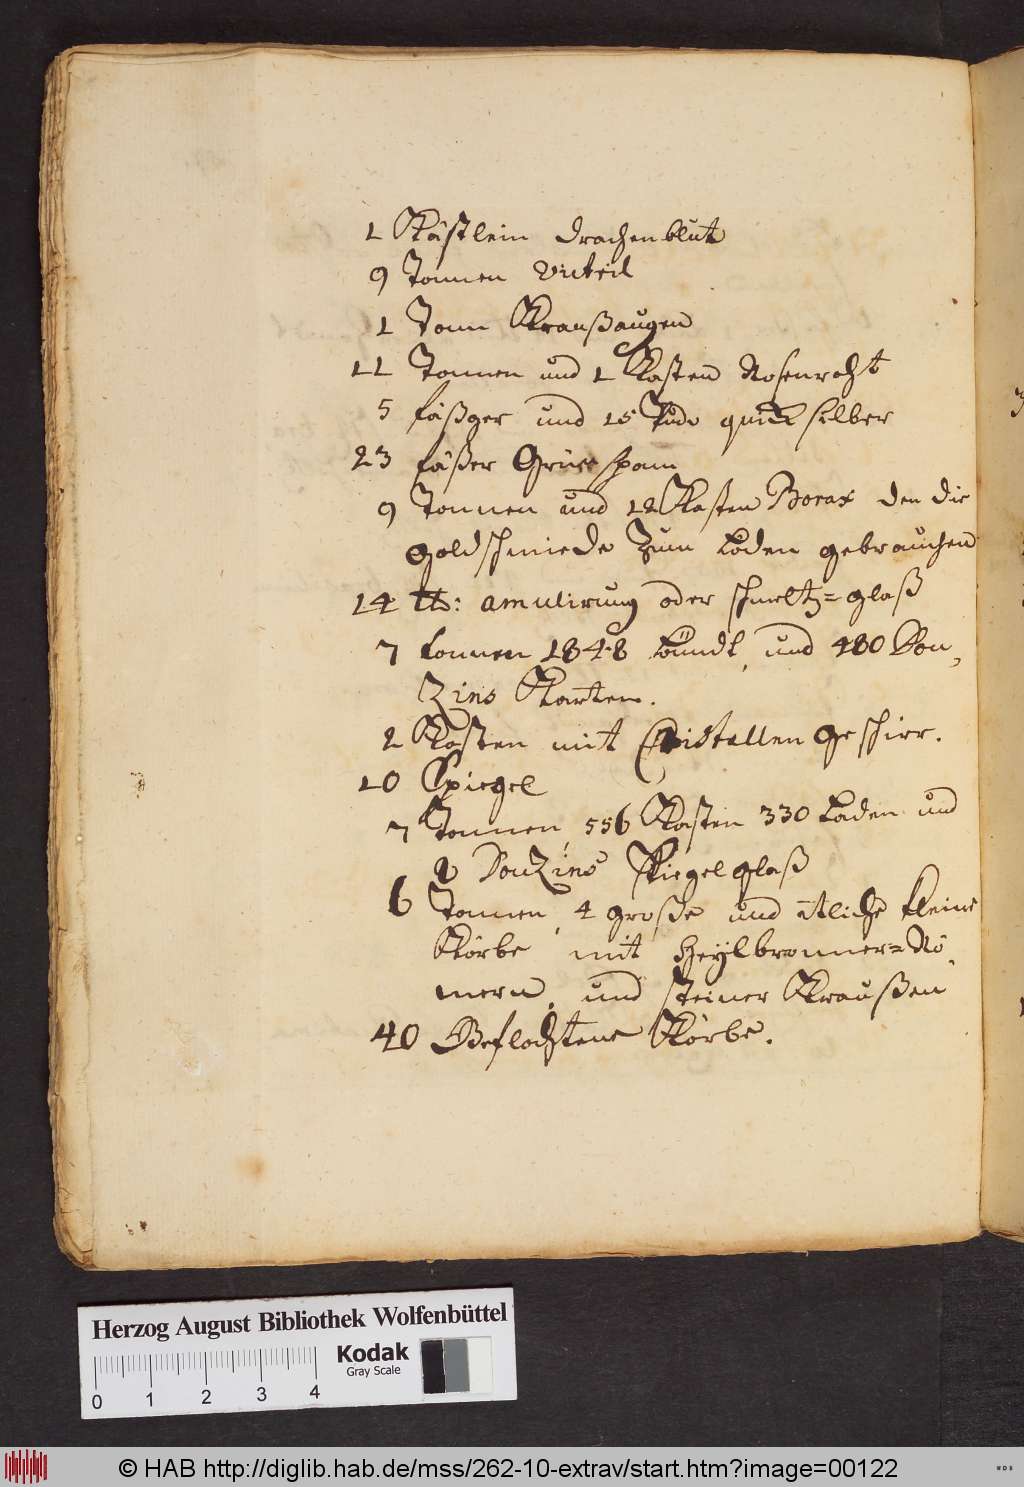 1 Kästlein drachenblut
9 Tonnen Vitril
1 Tonn Kraußaugen
11 Tonnen und 1 Kasten Rosenroht
5 fäßger und 15 quick silber
23 fäßer Grüne Span
9 Tonnen und 12 Kasten Borax den die
goldschmiede Zum Löden gebrauchen
14 tt: amulirung oder schmeltz=glaß
7 tonnen 1848 bündl, und 480 Don,
Zins Karten.
2 Kasten mit Cristallen Geschirr.
10 Spiegel
7 Tonnen, 556 Kasten 330 Laden und
2 DonZins Spiegel glaß
6 Tonnen, 4 große und itliche kleine
Körbe mit Heylbronner=Rö,
mern, und steiner Kraußen
40 Geflochtene Körbe.
Herzog August Bibliothek Wolfenbüttel
Kodak
Gray Scale
0 1 2 3 4
© HAB http://diglib.hab.de/mss/262-10-extrav/start.htm?image=00122